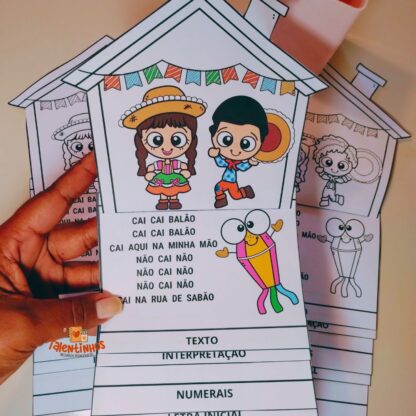 CAI CAI BALÃO
CAI CAI BALÃO
CAI AQUI NA MINHA MÃO
NÃO CAI NÃO
NÃO CAI NÃO
NÃO CAI NÃO
CAI NA RUA DE SABÃO
TEXTO
INTERPRETAÇÃO
NUMERAIS
LETRA INICIAL
Talentinhos